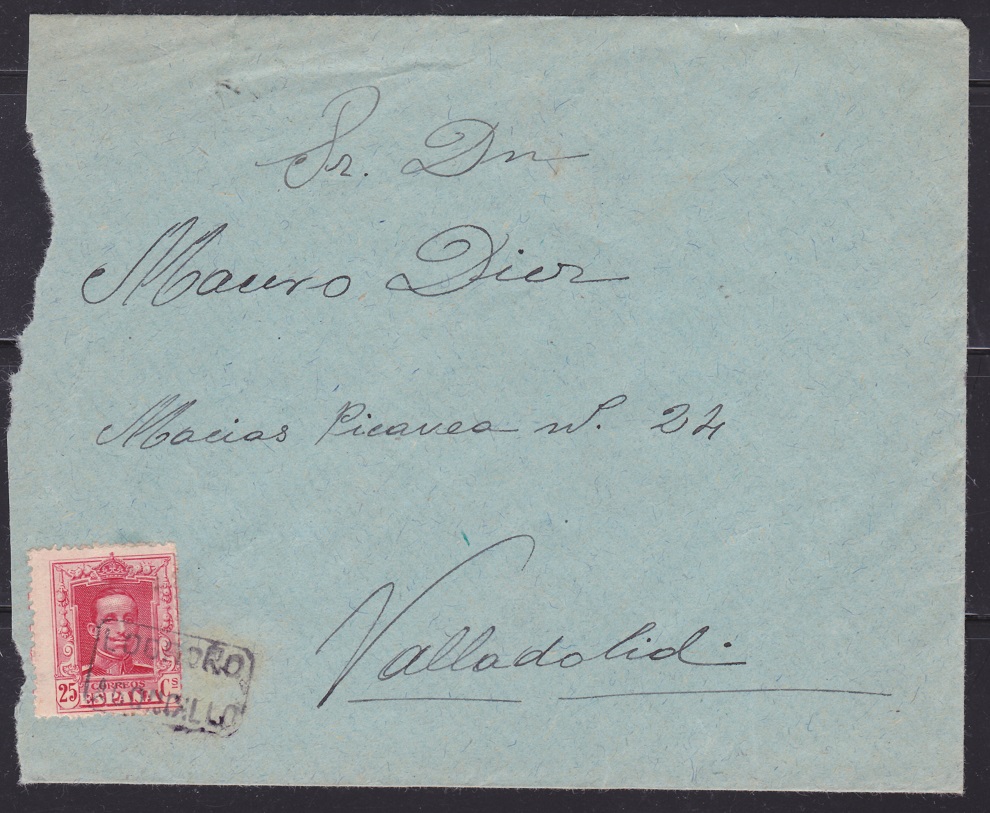 Sr. Dn
Mauro Diez
Macias Picavea nº. 24
Valladolid.
25 CORREOS Cs
ESPAÑA
LOGROÑO